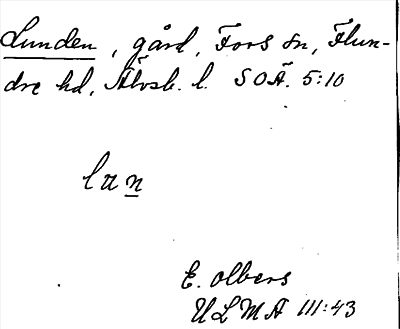 Lunden, gård, Fors sn, Flun-
dre hd, Älvsb. l. SOÄ. 5:10
lan
E. Olbers
ULMA III:43